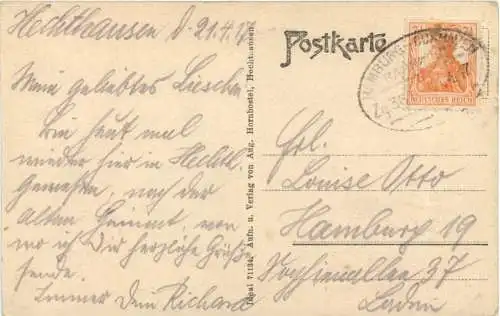 Hechthausen d. 21.4.17
Mein geliebtes Lieschen
Bin heut mal
wieder hier in Hechth.
nach der
alten Heimat, von
wo ich Dir herzliche Grüße
sende.
Immer Dein Richard
Postkarte
DEUTSCHES REICH
HAMBURG CUXHAVEN
Frl.
Louise Otto
Hamburg 19
37
Laden
71134. Aufn. u. Verlag von Aug. Hornbostel, Hechthausen.